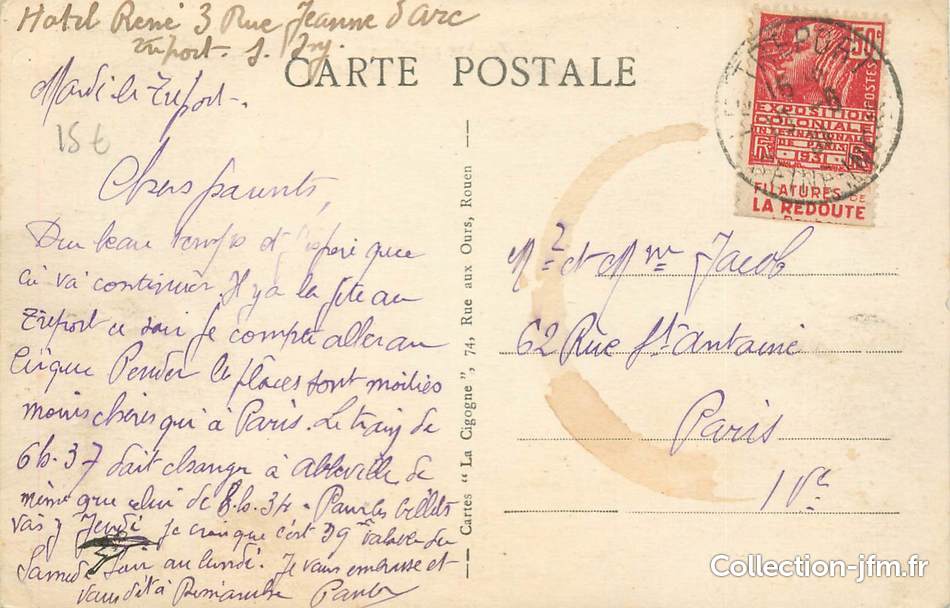 Hotel René 3 Rue Jeanne d'arc
Tréport. S. Inf.
CARTE POSTALE
Mardi le Treport.
15 €
Chers parents,
Du beau temps et j'espère que
ça va continuer. Il y a la fête au
Tréport ce soir je compte aller au
Cirque Pender les places sont moitiés
moins chères qu'à Paris. Le train de
6h.37 doit changer à Abbeville de
même que celui de 8.h.34. Pour les billets
vas y Jeudi je crois que c'est 39f valable du
Samedi Soir au lundi. Je vous embrasse et
vous dit à Dimanche
Cartes "La Cigogne", 74, Rue aux Ours, Rouen
50c
POSTES
EXPOSITION
COLONIALE
INTERNATIONALE
DE PARIS
1931
RF
FILATURES DE
LA REDOUTE
LE TREPORT
Mr et Mme Jacob
62 Rue St Antoine
Paris
IVe
Collection-jfm.fr